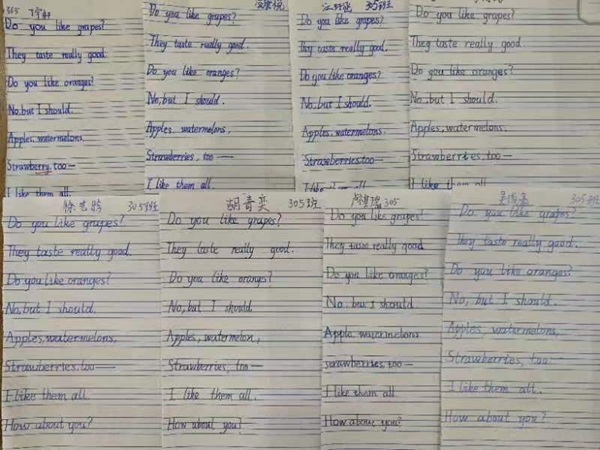 305
Do you like grapes?
They taste really good.
Do you like oranges?
No, but I should.
Apples, watermelons,
Strawberry, too—
I like them all.
Do you like grapes?
They taste really good.
Do you like oranges?
No, but I should.
Apples, watermelons,
Strawberries, too—
I like them all.
305班
Do you like grapes?
They taste really good.
Do you like oranges?
No, but I should.
Apples, watermelons.
Strawberries, too—
I like them all.
Do you like grapes?
They taste really good.
Do you like oranges?
No, but I should.
Apples, watermelons,
Strawberries, too—
I like them all.
305班
Do you like grapes?
They taste really good.
Do you like oranges?
No, but I should.
Apples, watermelons,
Strawberries, too—
I like them all.
How about you?
胡奇奕 305班
Do you like grapes?
They taste really good.
Do you like oranges?
No, but I should
Apples, watermelon,
Strawberries, too—
I like them all.
How about you?
305
Do you like grapes?
They taste really good.
Do you like oranges?
No, but I should
Apple watermelons
strawberries, too—
I like them all
How about you?
305班
Do you like grapes?
They taste really good.
Do you like oranges?
No, but I should.
Apples, watermelons,
Strawberries, too
I like them all.
How about you?